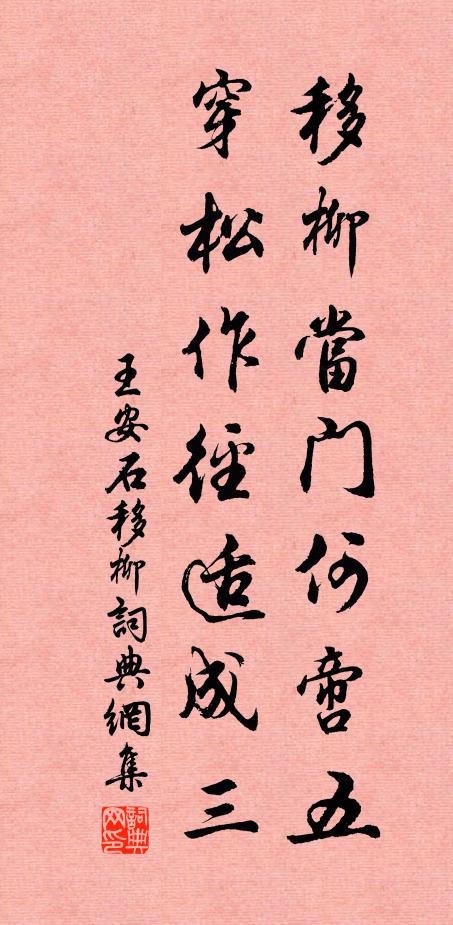 移柳當門何啻五
穿松作徑适成三
王安石移柳詞典網集
詞典網印